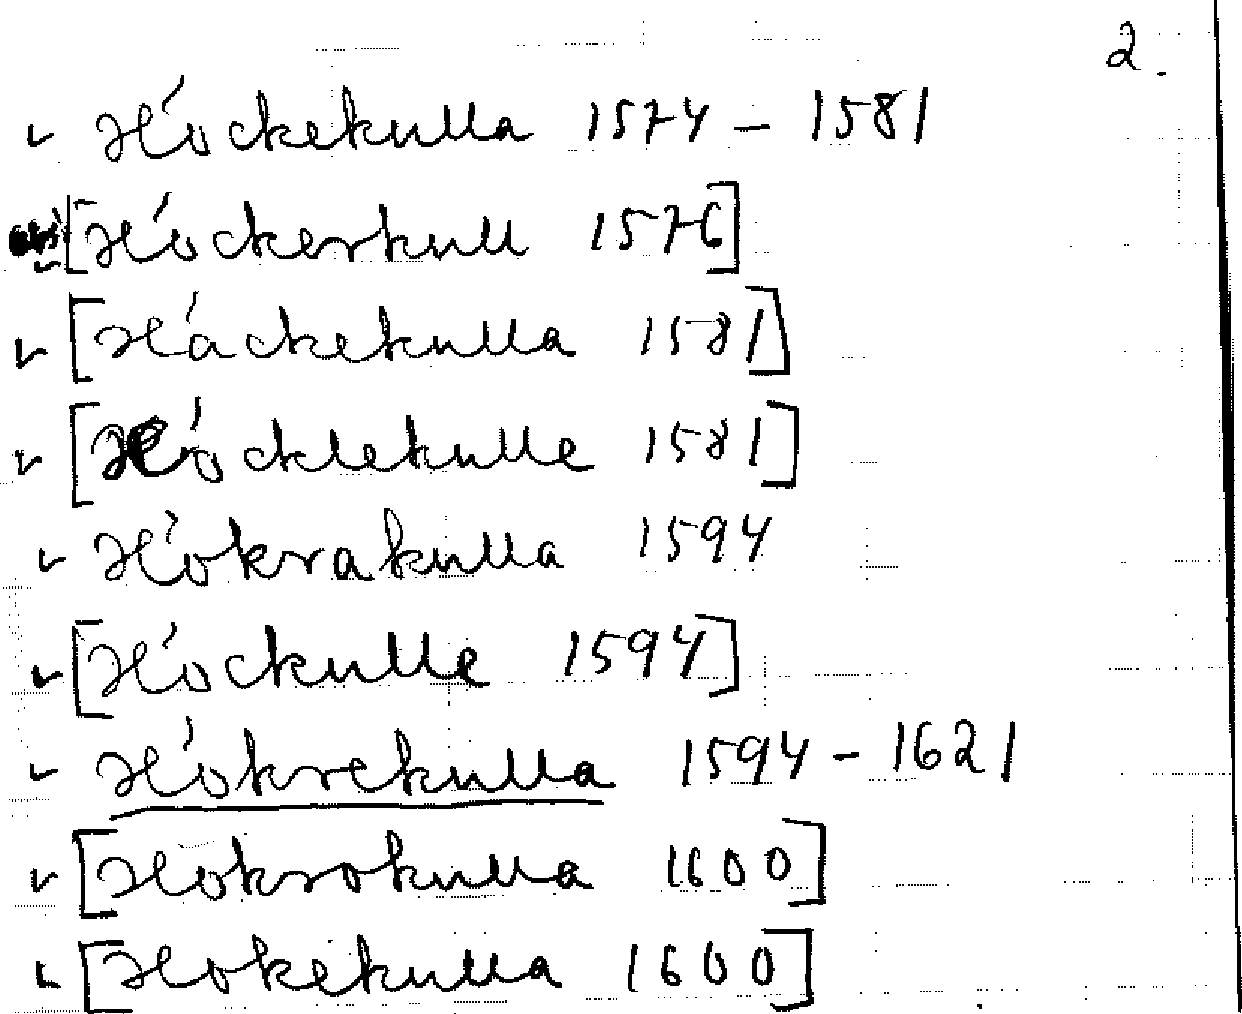 2.
✓ Hóckekulla 1574 – 1581
✓ [Hóckerkull 1576]
✓ [Háckekulla 1581]
✓ [Hócklekulle 1581]
✓ Hókrakulla 1594
✓ [Hóckulle 1594]
✓ Hókrekulla 1594 – 1621
✓ [Hokrokulla 1600]
✓ [Hokekulla 1600]